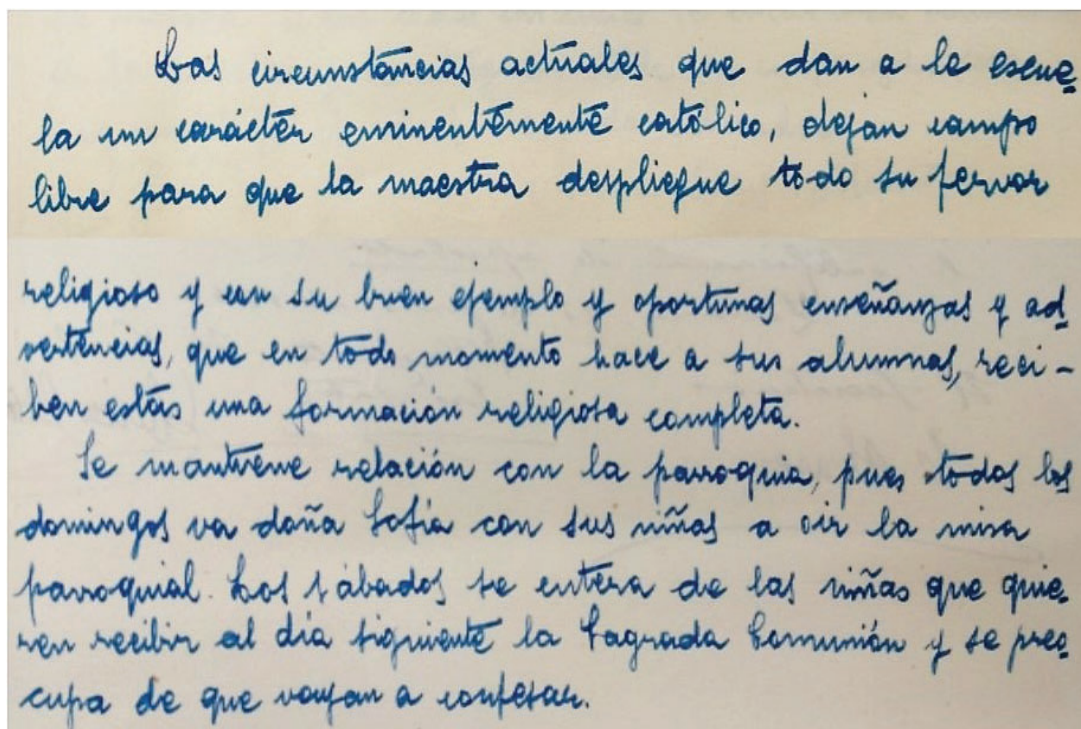 Las circunstancias actuales que dan a la escue
la un carácter eminentemente católico, dejan campo
libre para que la maestra despliegue todo su fervor
religioso y con su buen ejemplo y oportunas enseñanzas y ad
vertencias, que en todo momento hace a sus alumnas, reci-
ben estás una formación religiosa completa.
Se mantiene relación con la parroquia, pues todos los
domingos va doña Sofía con sus niñas a oir la misa
parroquial. Los sábados se entera de las niñas que quie
ren recibir al día siguiente la Sagrada Comunión y se preo
cupa de que vayan a confesar.